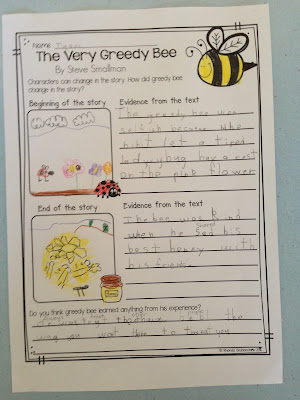 Name
The Very Greedy Bee
By Steve Smallman
Characters can change in the story. How did greedy bee
change in the story?
Beginning of the story
Evidence from the text
The greedy bee was
selfish because he
didnt let a tired
ladybug have a rest
on the pink flower
End of the story
Evidence from the text
The bee was kind
when he shared his
best honey with
his friends.
Do you think greedy bee learned anything from his experience?
the
way you want them to treat you